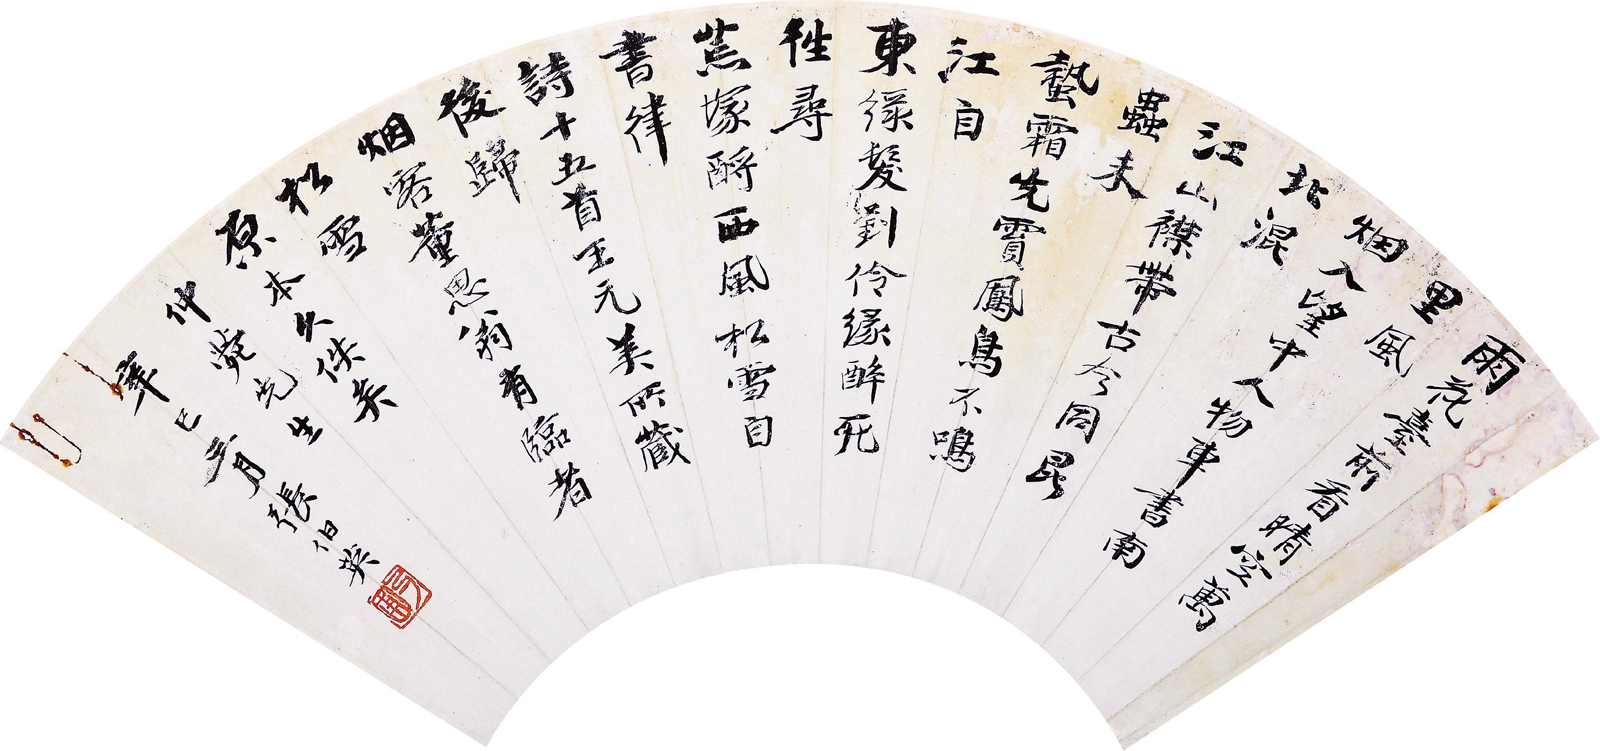 雨花臺前看晴空萬
里風
烟入望中人物車書南
北混
江山襟帶古今同昆
蟲未
蟄霜先霣鳳鳥不鳴
江自
東綠髮劉伶緣醉死
往尋
荒塚酹西風松雪自
書律
詩十五首王元美所藏
後歸
烟客董思翁有臨者
松雪
原本久佚矣
仲先生
辛巳月張伯英